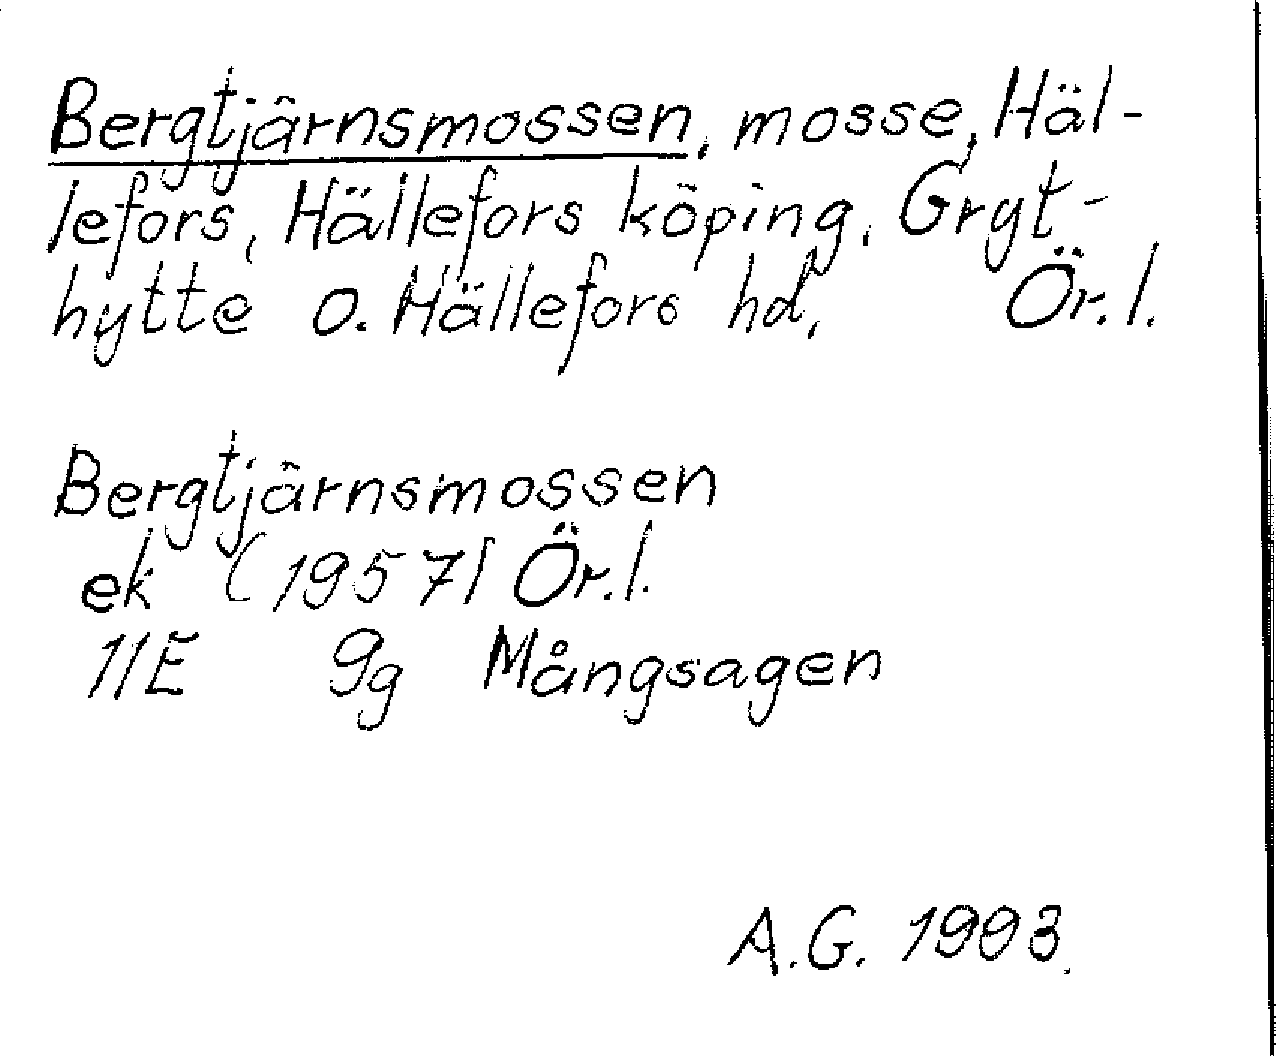 Bergtjärnsmossen, mosse, Häl-
lefors, Hällefors köping, Gryt-
hytte o. Hällefors hd, Ör. l.
Bergtjärnsmossen
ek (1957) Ör. l.
11E 9g Mångsagen
A.G. 1993.